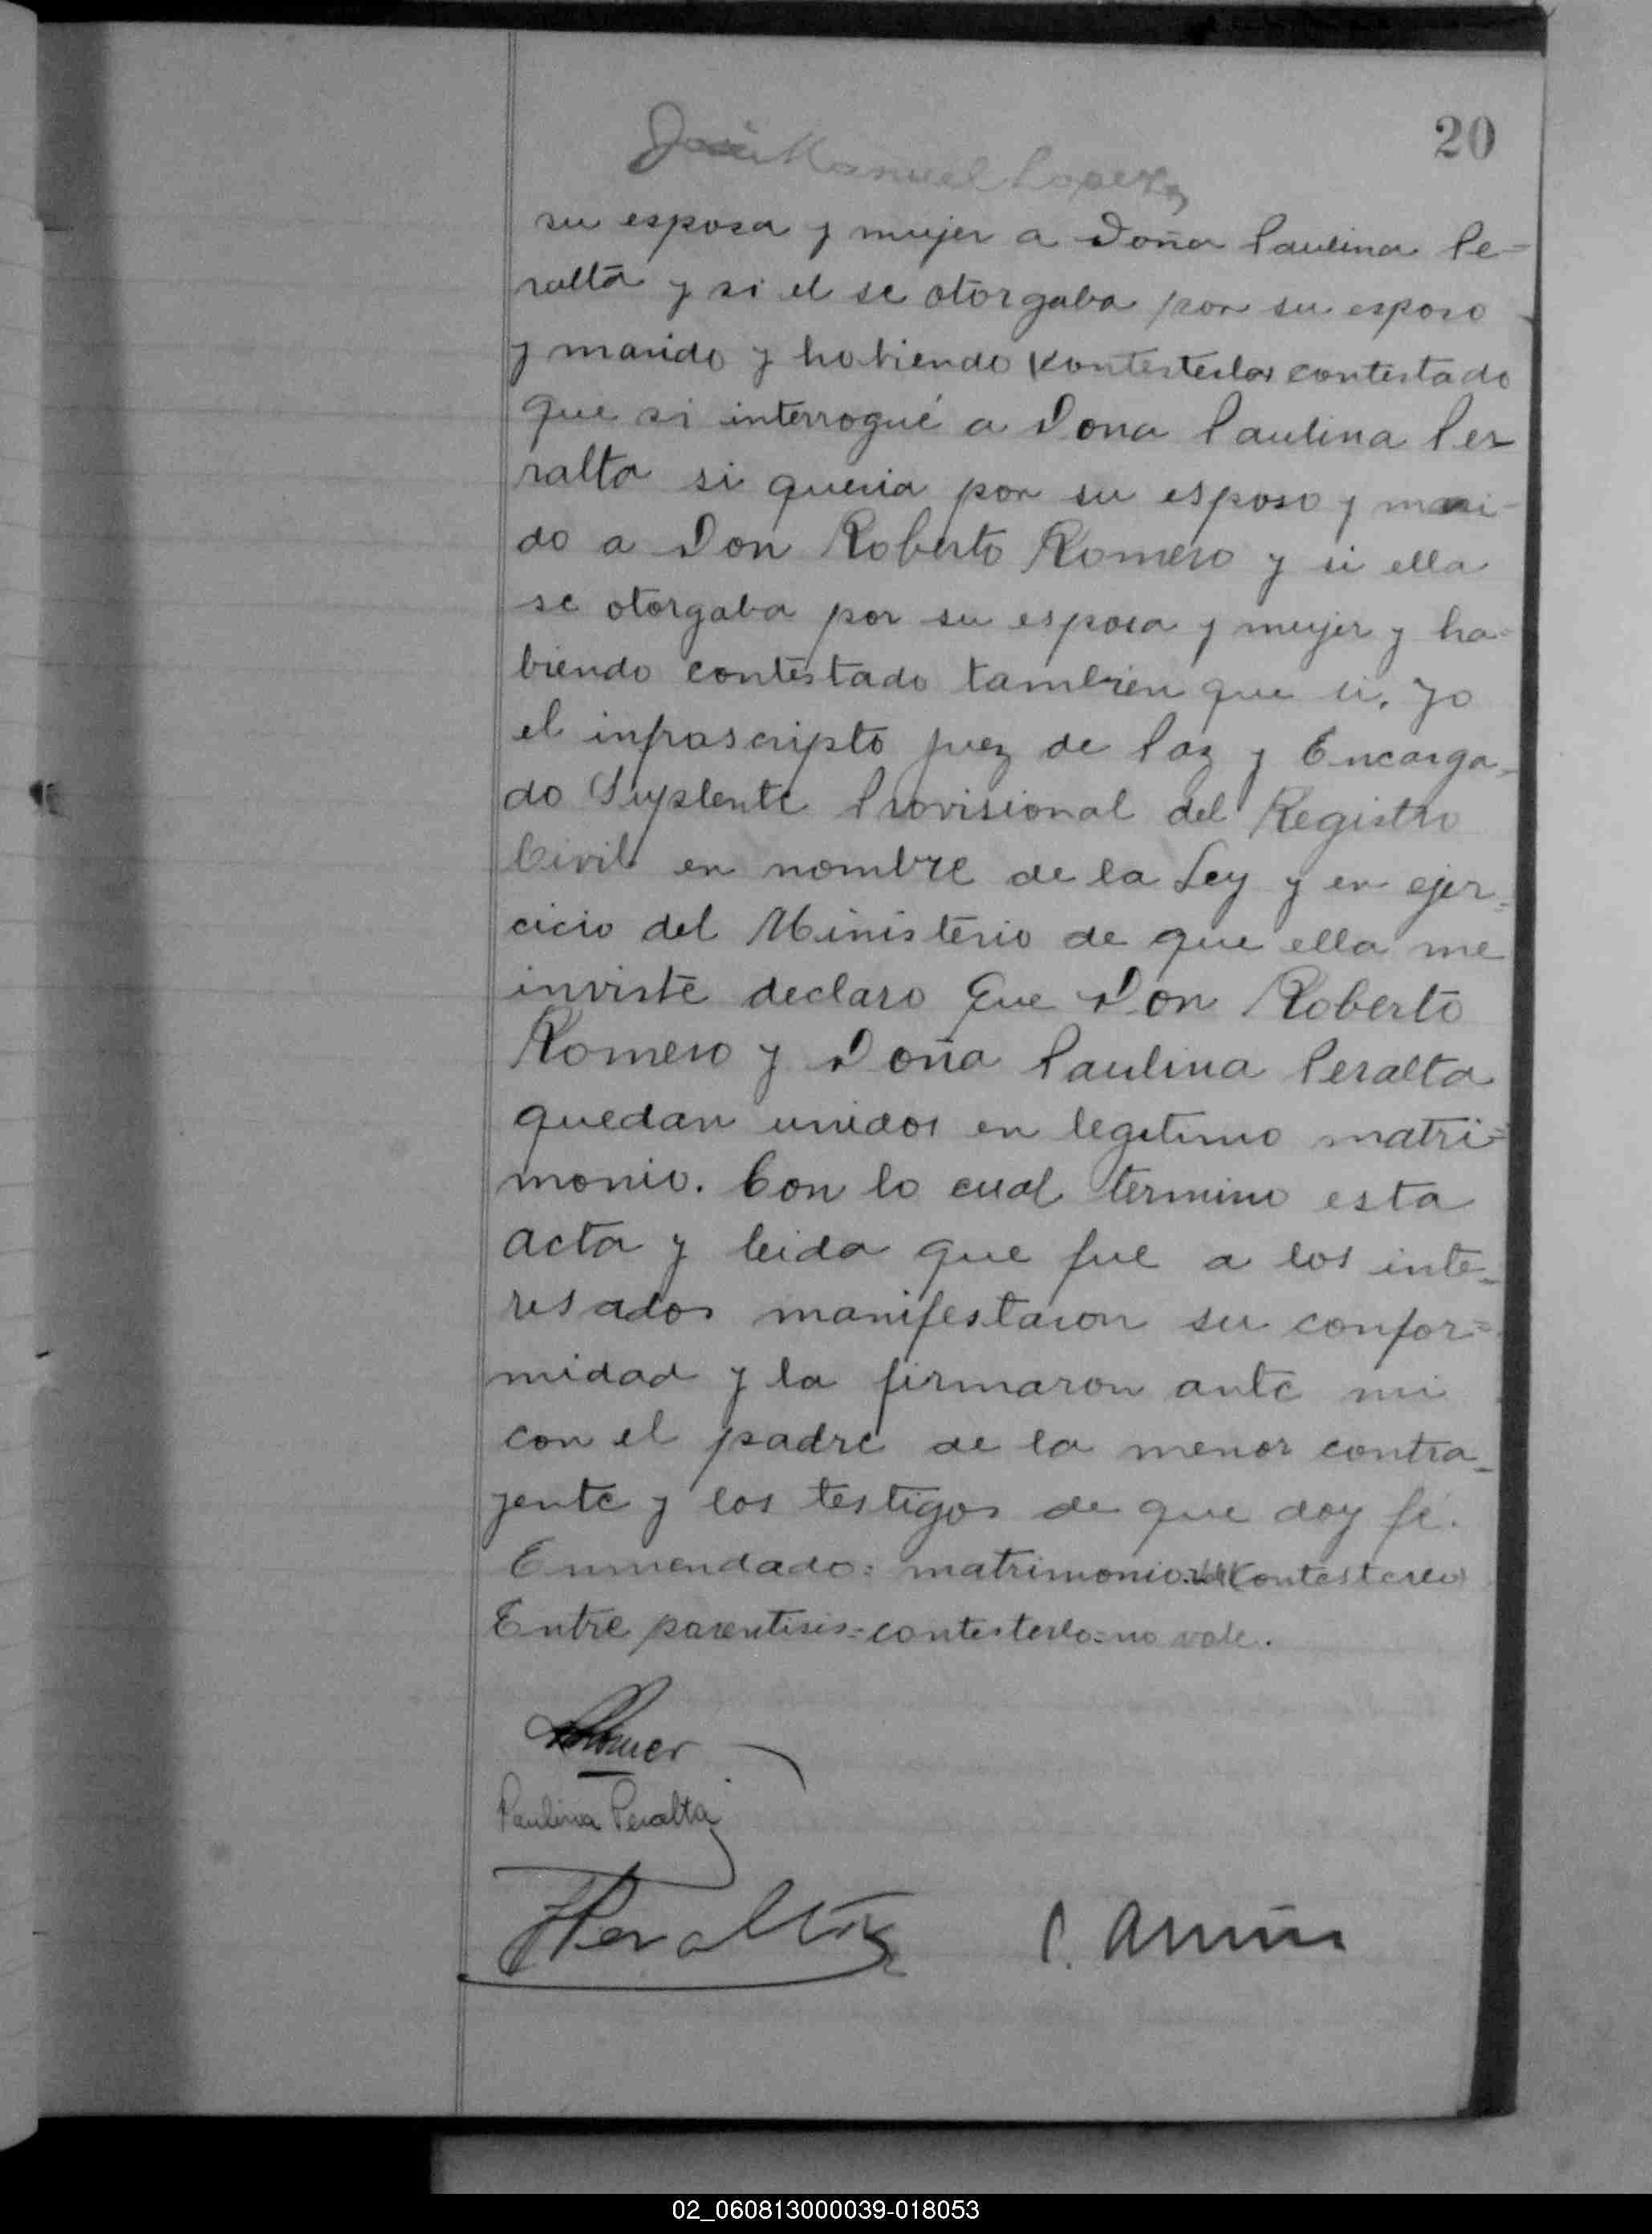 20
José Manuel Lopez
su esposa y mujer a Doña Paulina Pe=
ralta y si el se otorgaba por su esposo
y marido y habiendo (contesterlo) contestado
que si interrogué a Dona Paulina Per
ralta si queria por su esposo y mari-
do a Don Roberto Romero y si ella
se otorgaba por su esposa y mujer y ha=
biendo contestado tambien que si. Yo
el infrascripto juez de Paz y Encarga=
do Suplente Provisional del Registro
Civil en nombre de la Ley y en ejer=
cicio del Ministerio de que ella me
inviste declaro Que Don Roberto
Romero y Doña Paulina Peralta
quedan unidos en legitimo matri=
monio. Con lo cual termino esta
acta y leida que fue a los inte=
resados manifestaron su confor=
midad y la firmaron ante mi
con el padre de la menor contra=
yente y los testigos de que doy fé.
Enmendado: matrimonio
Entre parentisis=contesterlo=no vale.
Paulina Peralta
Peralta
02_060813000039-018053